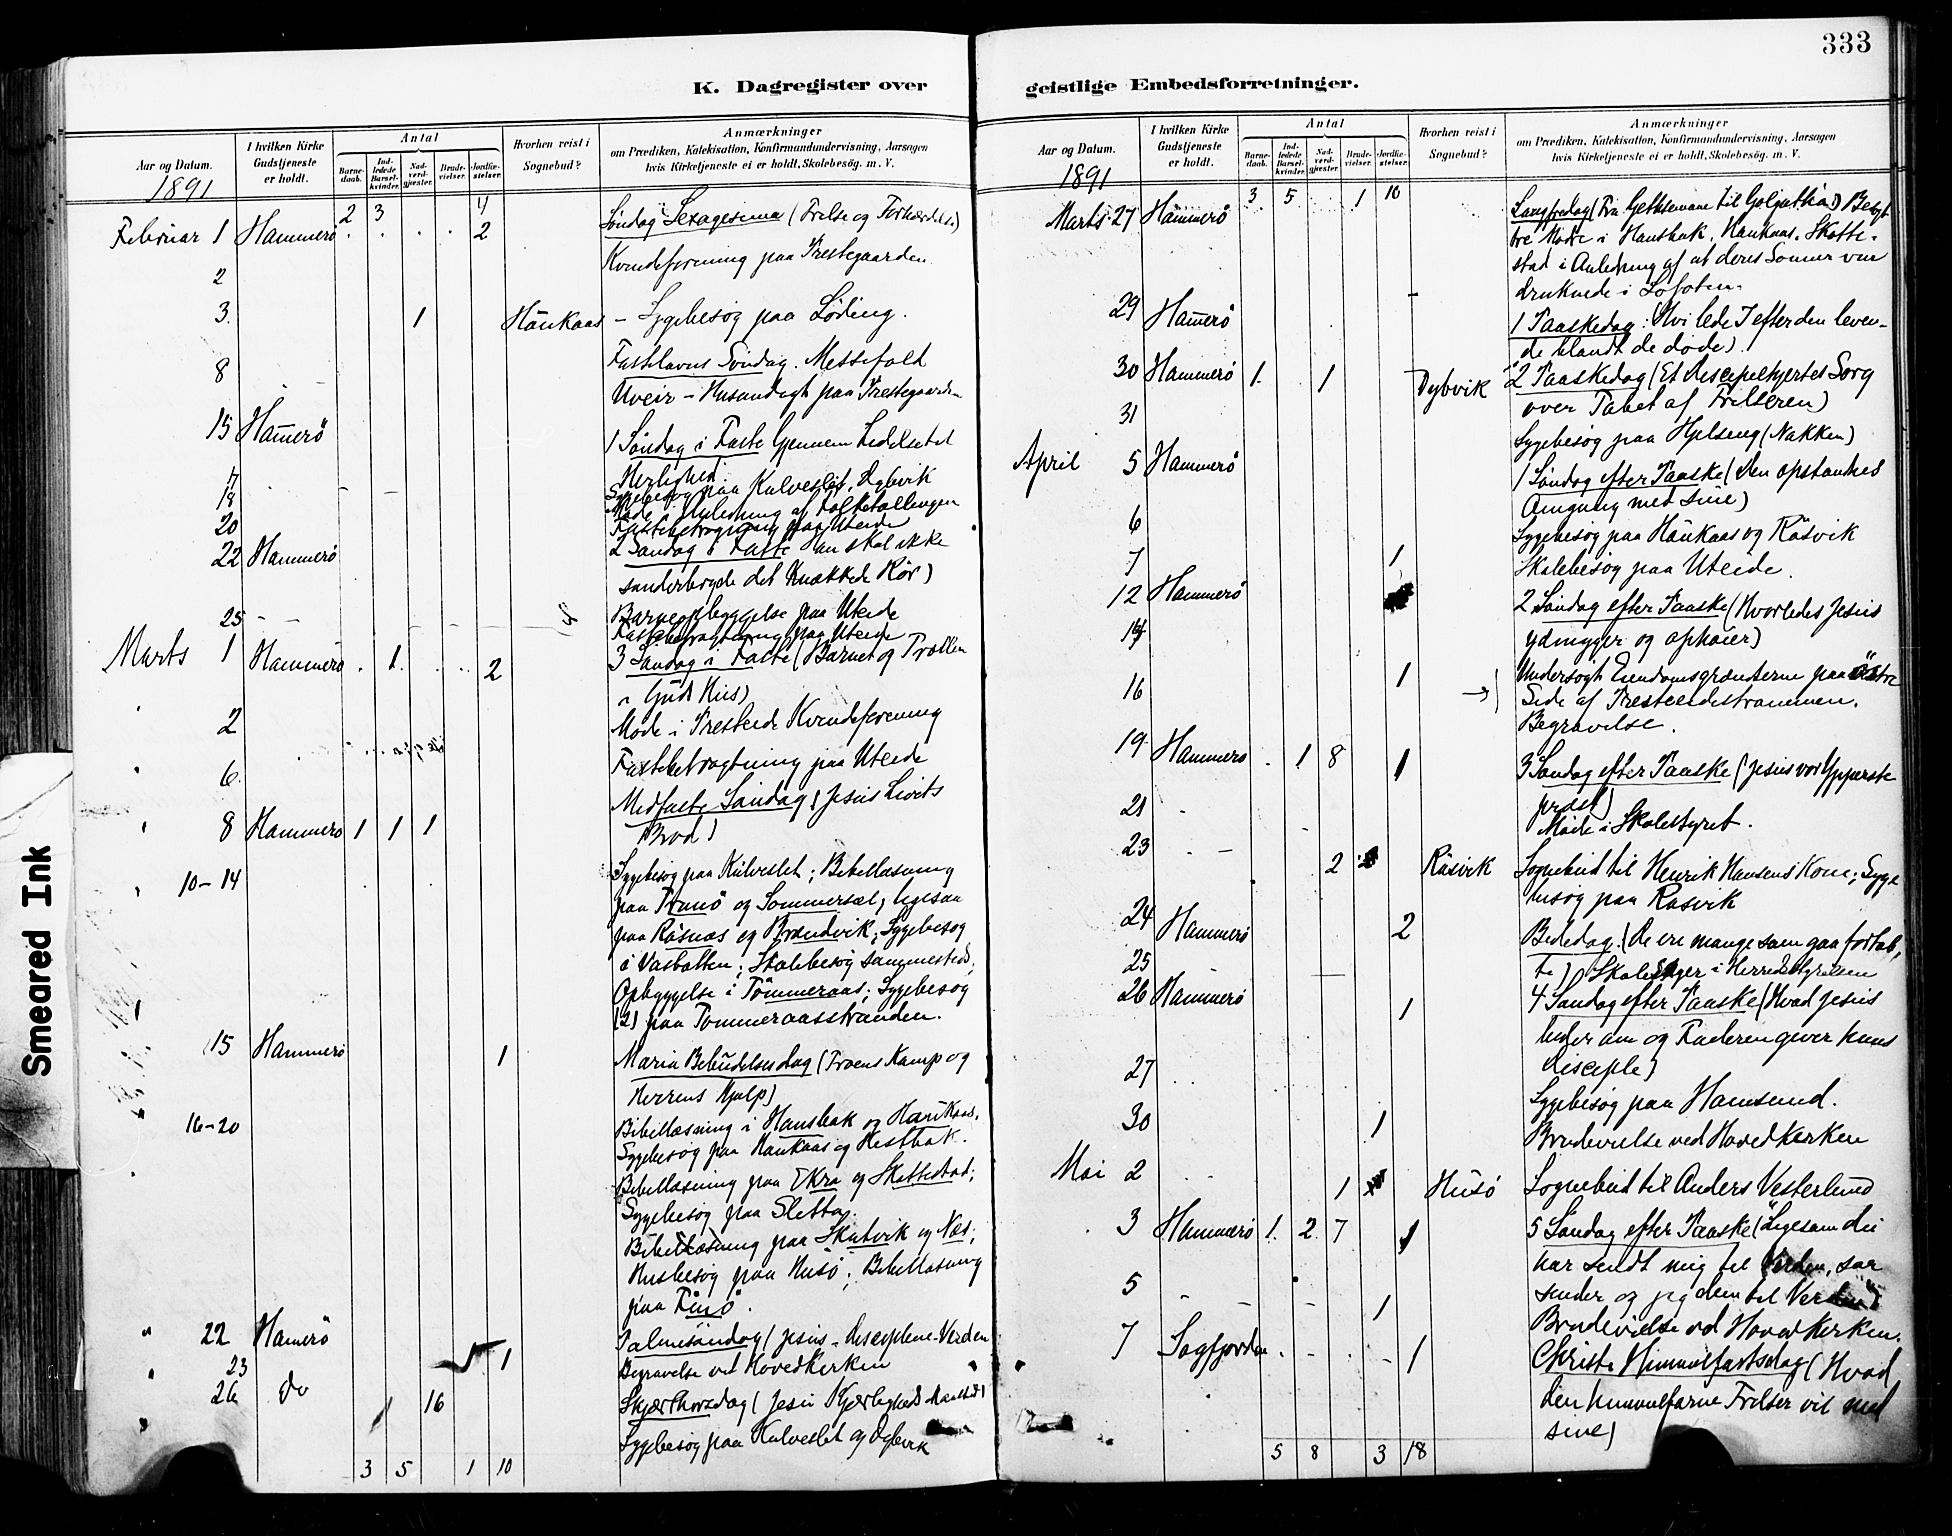 333
K. Dagregister over
Aar og Datum.
1891
I hvilken Kirke
Gudstjeneste
er holdt.
Antal
Barne-
daab.
Ind-
ledede
Barsel-
kvinder.
Nad-
verd-
gjester.
Brude-
vielser.
Jordfæ-
stelser.
Hvorhen reist i
Sognebud?
Anmærkninger
om Prædiken, Katekisation, Konfirmandundervisning, Aarsagen
hvis Kirketjeneste ei er holdt, Skolebesög. m. V.
2 3 4
Februar 1 Hammerö 2 Søndag Sexagesima (Frelse og Forhærdelse)
2 Kvindeforening paa Præstegaarden
3. 1 Haukaas – Sygebesøg paa Løding.
8 Fastelavns Søndag. Messefald
Uveir – Husandagt paa Præstegaarden
15 Hamerö 1 Søndag i Faste Gjennem Lidelse til
Herlighed
17 Sygebesøg paa Kalveslet, Dybvik
18 Møde i Anledning af Folketællingen
20 Fastebetragtning paa Uteide
22 Hammerö 2 Søndag i Faste Han skal ikke
sønderbryde det knækkede Rør)
25 Barneopbyggelse paa Uteide
Fastebetragtning paa Uteide
Marts 1 Hammerö 1 2 3 Søndag i Faste (Barnet og Trællen
i Guds Hus)
2 Møde i Presteide Kvindeforening
6. Fastebetragtning paa Uteide
8 Hammerö 1 1 1 Midfaste Søndag (Jesus Livets
Brød)
10–14 Sygebesøg paa Kulveslet; Bibellæsning
paa Tranö og Sommersæl, ligesaa
paa Räsnæs og Brændvik; Sygebesøg
i Vasbotten; Skolebesøg sammesteds;
Opbyggelse i Tømmeraas; Sygebesøg
(2) paa Tømmeraasstranden.
15 Hammerö 1 Maria Bebudelsesdag (Troens Kamp og
Herrens Hjælp)
16–20 Bibellæsning i Hansbak og Haukaas.
Sygebesøg paa Haukaas og Hestbak.
Bibellæsning paa Ekra og Skottestad;
Sygebesøg paa Sletta.
Bibellæsning paa Skutvik og Næs;
Husbesøg paa Husö; Bibellæsning
paa Finö.
22 Hamerö Palmesøndag (Jesus – Disciplene – Verden
23 1 Begravelse ved Hovedkirken
26 do 1 16 Skjærthorsdag (Jesu Kjærligheds Maaltid)
Sygebesøg paa Kulveslet og Dybvik
3 5 1 10
geistlige Embedsforretninger.
Aar og Datum.
1891
I hvilken Kirke
Gudstjeneste
er holdt.
Antal
Barne-
daab.
Ind-
ledede
Barsel-
kvinder.
Nad-
verd-
gjester.
Brude-
vielser.
Jordfæ-
stelser.
Hvorhen reist i
Sognebud?
Anmærkninger
om Prædiken, Katekisation, Konfirmandundervisning, Aarsagen
hvis Kirketjeneste ei er holdt, Skolebesög. m. V.
3 5 1 10
Marts 27 Hammerö Langfredag (Fra Gethsemane til Golgatha)
Mødre i Hansbak, Haukaas, Skotte-
stad i Anledning af at deres Sønner var
druknede i Lofoten.
29 Hamerö 1 Paaskedag: (Hvi lede I efter den leven-
de blandt de døde)
30 Hammerö 1. 1 Dybvik 2 Paaskedag (Et Discipelhjertes Sorg
over Tabet af Frelseren)
31 Sygebesøg paa Hjelseng (Nakken)
April 5 Hammerö 1 Søndag efter Paaske (Den opstandnes
Omgang med sine)
6 Sygebesøg paa Haukaas og Räsvik
7 1 Skolebesøg paa Uteide.
12 Hammerö 2 Søndag efter Paaske (Hvorledes Jesus
ydmyger og ophøier)
14
16 1 Undersøgt Eiendomsgrændserne paa Östre
Side af Presteeidestrømmen.
Begravelse.
19 Hammerö 1 8 1 3 Søndag efter Paaske (Jesus vor Ypperste
prest)
21 Møde i Skolestyret.
23 2 Räsvik Sognebud til Henrik Hansens Kone; Syge
besøg paa Räsvik
24 Hammerö 2 Bededag. (De ere mange som gaa fortab,
25 te) Skolesager i Herredstyrelsen
26 Hammerö 1 4 Søndag efter Paaske (Hvad Jesus
beder om og Faderen giver hans
Disciple)
27 Sygebesøg paa Hamsund.
30 1 Brudevielse ved Hovedkirken
Mai 2 1 Husö Sognebud til Anders Vesterlund
3 Hammerö 1. 2 7 1 5 Søndag efter Paaske ("Ligesom du
har sendt mig til Verden, saa
sender og jeg dem til Verden)
5 1 Brudevielse ved Hovedkirken.
7 Sagfjorden 1 Christi Himmelfartsdag (Hvad
den himmelfarne Frelser vil med
sine)
5 8 3 18
Smeared Ink